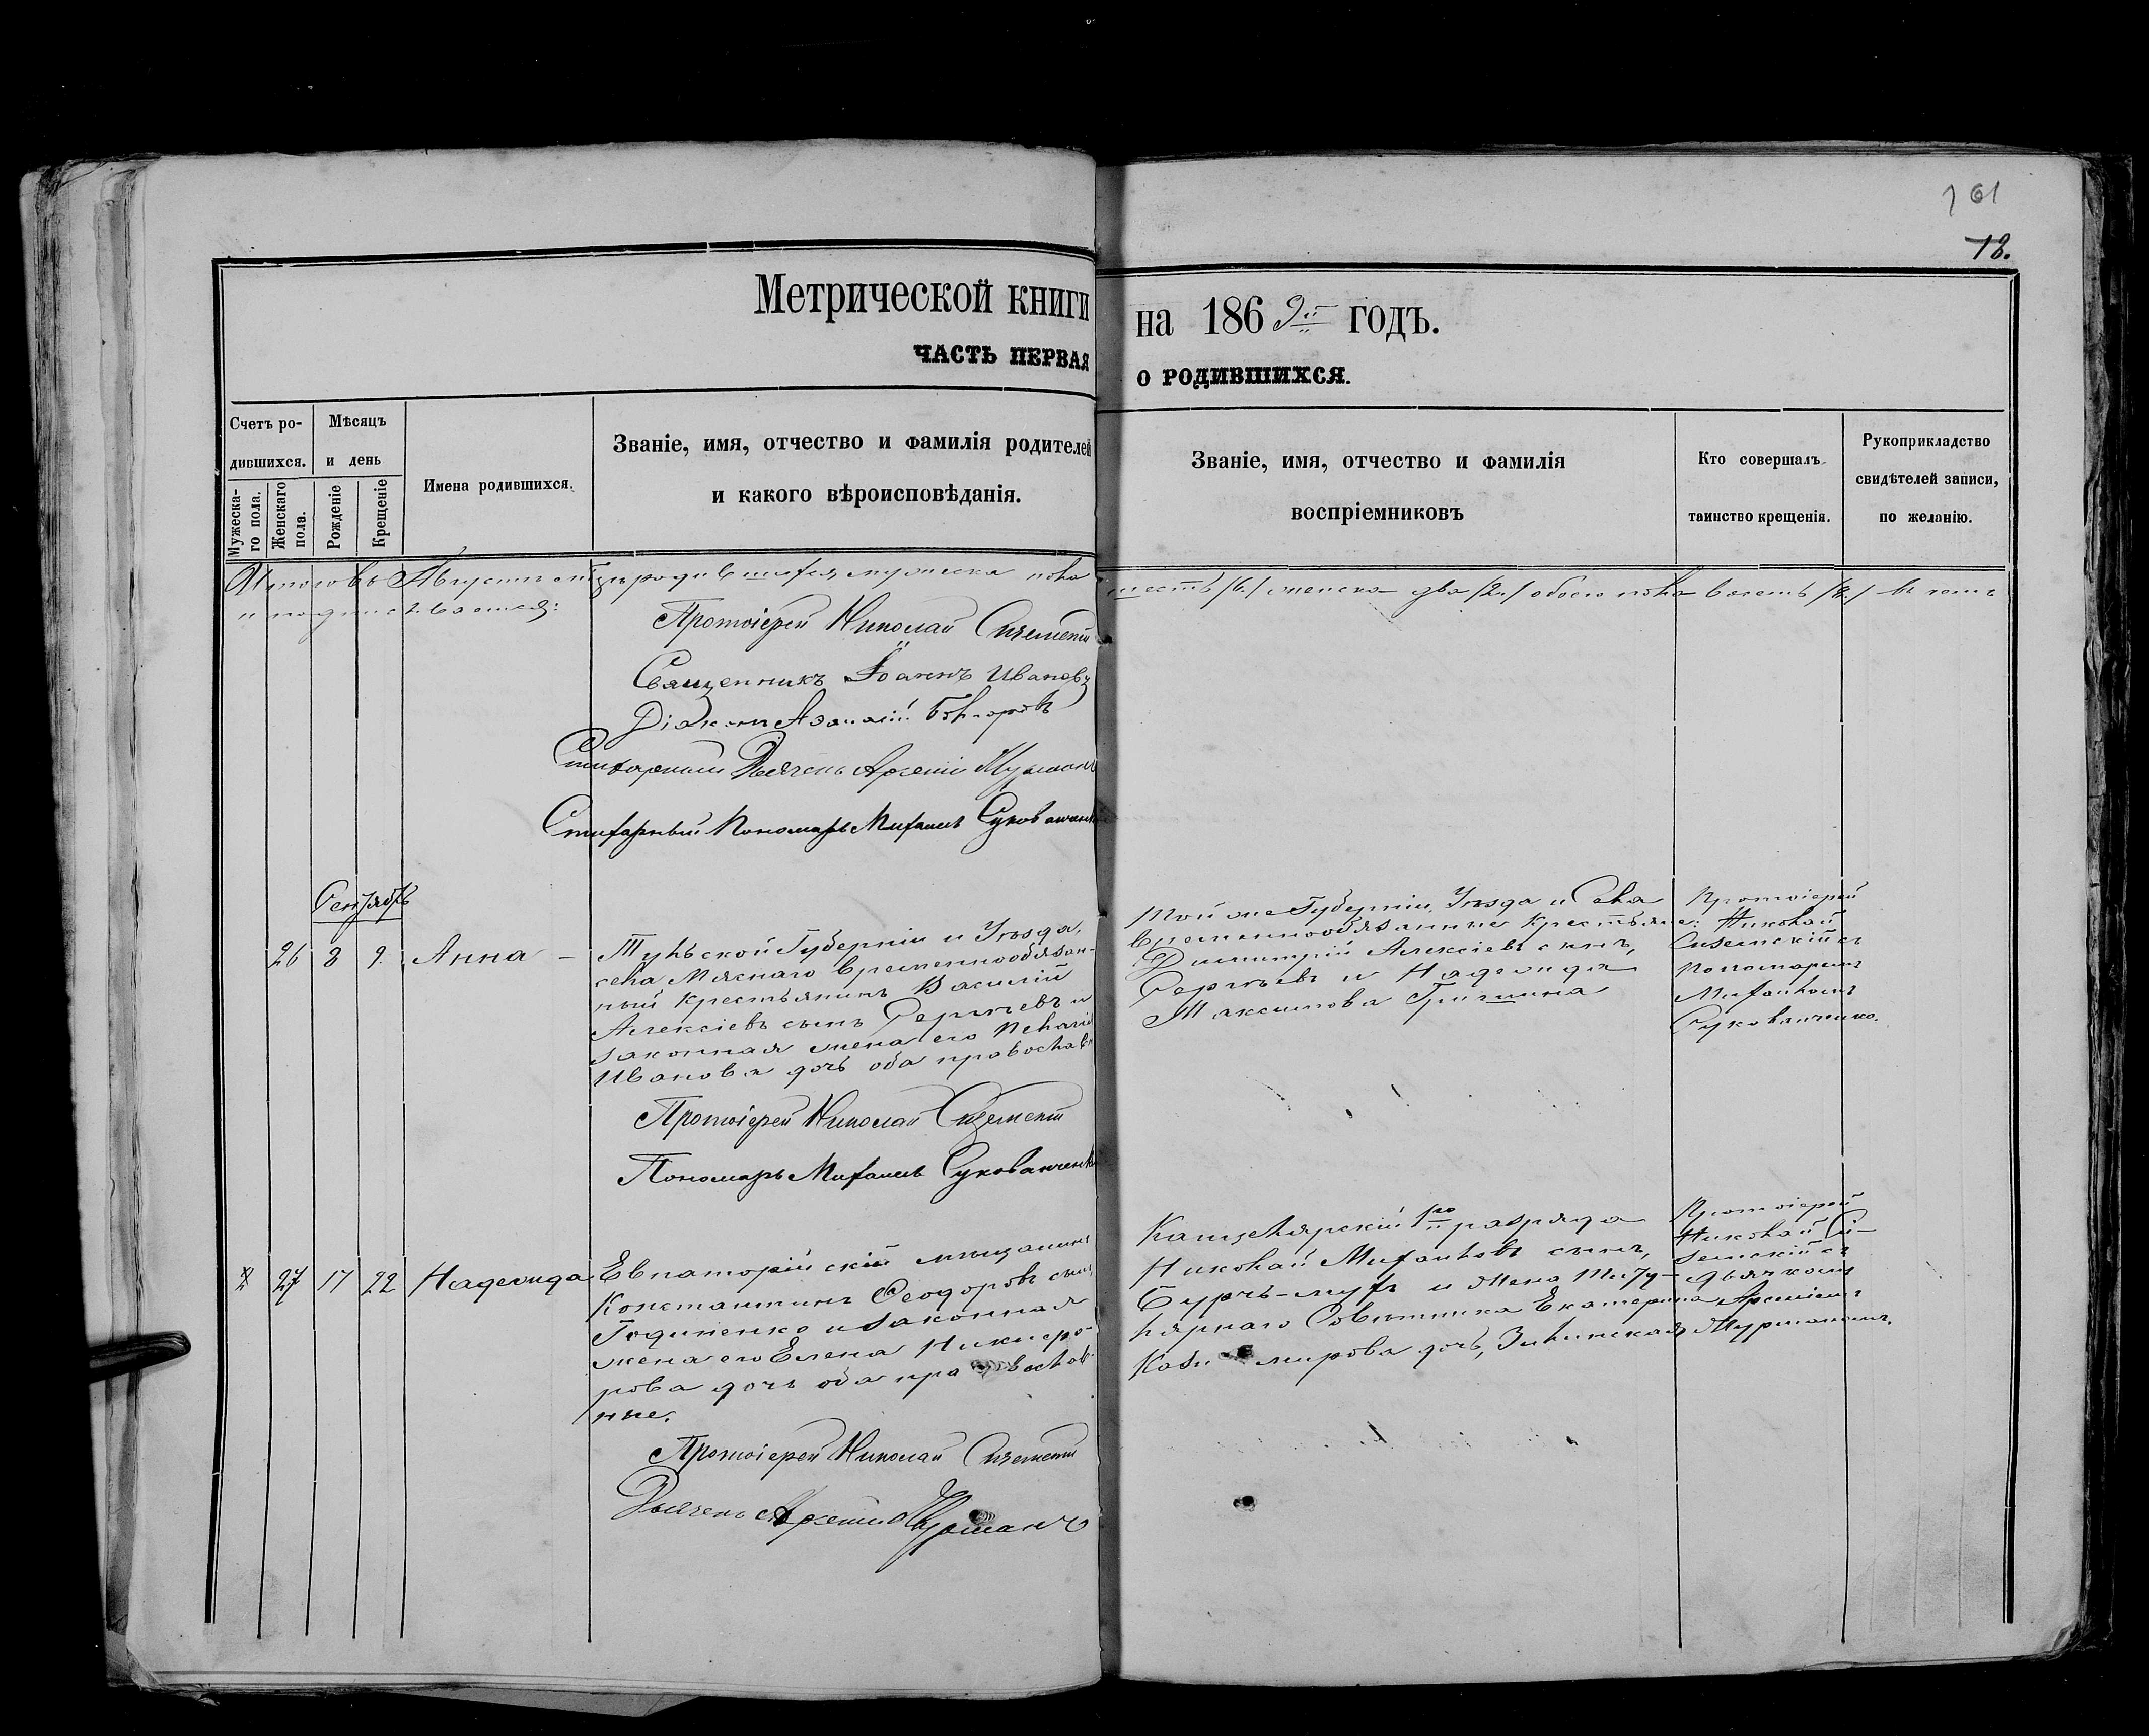 161
18.
Метрической книги на 1869й годъ.
ЧАСТЬ ПЕРВАЯ О РОДИВШИХСЯ.
Счетъ родившихся.
Мужеска-го пола.
Женскаго пола.
Мѣсяцъ и день
Рожденіе
Крещеніе
Имена родившихся.
Званіе, имя, отчество и фамилія родителей
и какого вѣроисповѣданія.
Званіе, имя, отчество и фамилія
воспріемниковъ
Кто совершалъ
таинство крещенія.
Рукоприкладство
свидѣтелей записи,
по желанію.
Итого въ Августѣ мѣсяцѣ родившихся мужеска пола шесть /6./ женска два /2./ обоего пола восемь /8./ въ чемъ
и подписываемся:
Протоіерей Николай
Священникъ Іоаннъ Ивановъ
Діаконъ
Стихарный Дьячекъ Арсеній
Стихарный Пономарь Михаилъ
Сентябрь
26 8 9. Анна —
Тульской Губерніи и Уѣзда,
села Мяснаго временнообязан-
ный крестьянинъ Василій
Алексіевъ сынъ Сергѣевъ и
законная жена его Пелагія
Иванова дочь оба православн
Той же Губерніи, Уѣзда и Села
временнообязанные крестьяне:
Димитрій Алексіевъ сынъ,
Сергѣевъ и Надежда
Максимова Гришина
Протоіерей
Николай
съ
Пономаремъ
Михаиломъ
Протоіерей Николай
Пономарь Михаилъ
27 17 22 Надежда
Евпаторійскій мѣщанинъ
Константинъ Ѳеодоровъ сынъ
и законная
жена его Елена Никифо-
рова дочь оба православ-
ные.
Канцелярскій 1го разряда
Николай Михаиловъ сынъ,
и жена Титу-
лярнаго Совѣтника Екатерина
дочь,
Протоіерей
Николай Си-
земскій съ
дьячкомъ
Арсеніемъ
Протоіерей Николай
Дьячекъ Арсеній